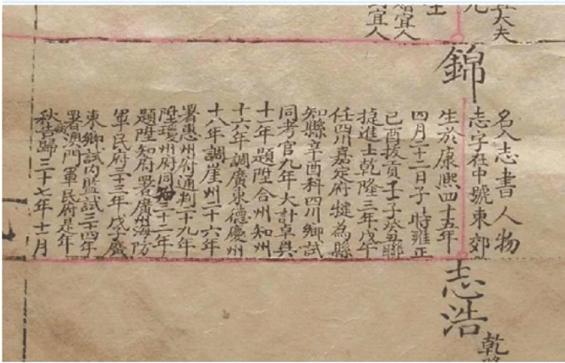 大夫
生
宜人
宜人
名入志書人物
志字在中號東郊
錦
生於康熙四十五年
四月二十二日子時雍正
己酉拔貢壬子癸丑聯
捷進士乾隆三年戊午
任四川嘉定府犍為縣
知縣辛酉科四川鄉試
同考官九年大計卓異
十一年題陞合州知州
十六年調廣東德慶州
十八年調崖州二十六年
署惠州府通判二十九年
陞瓊州府同知三十二年
題陞知府署廣州海防
軍民府三十三年戊子
東鄉試內監試三十四年
署澳門軍民府是年
秋告歸三十七年十一月
志浩
乾